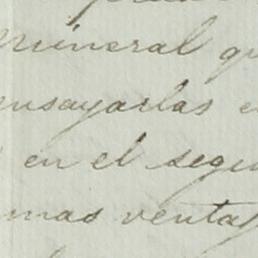 mineral qu
ensayarlas e
en el segu
mas ventaj